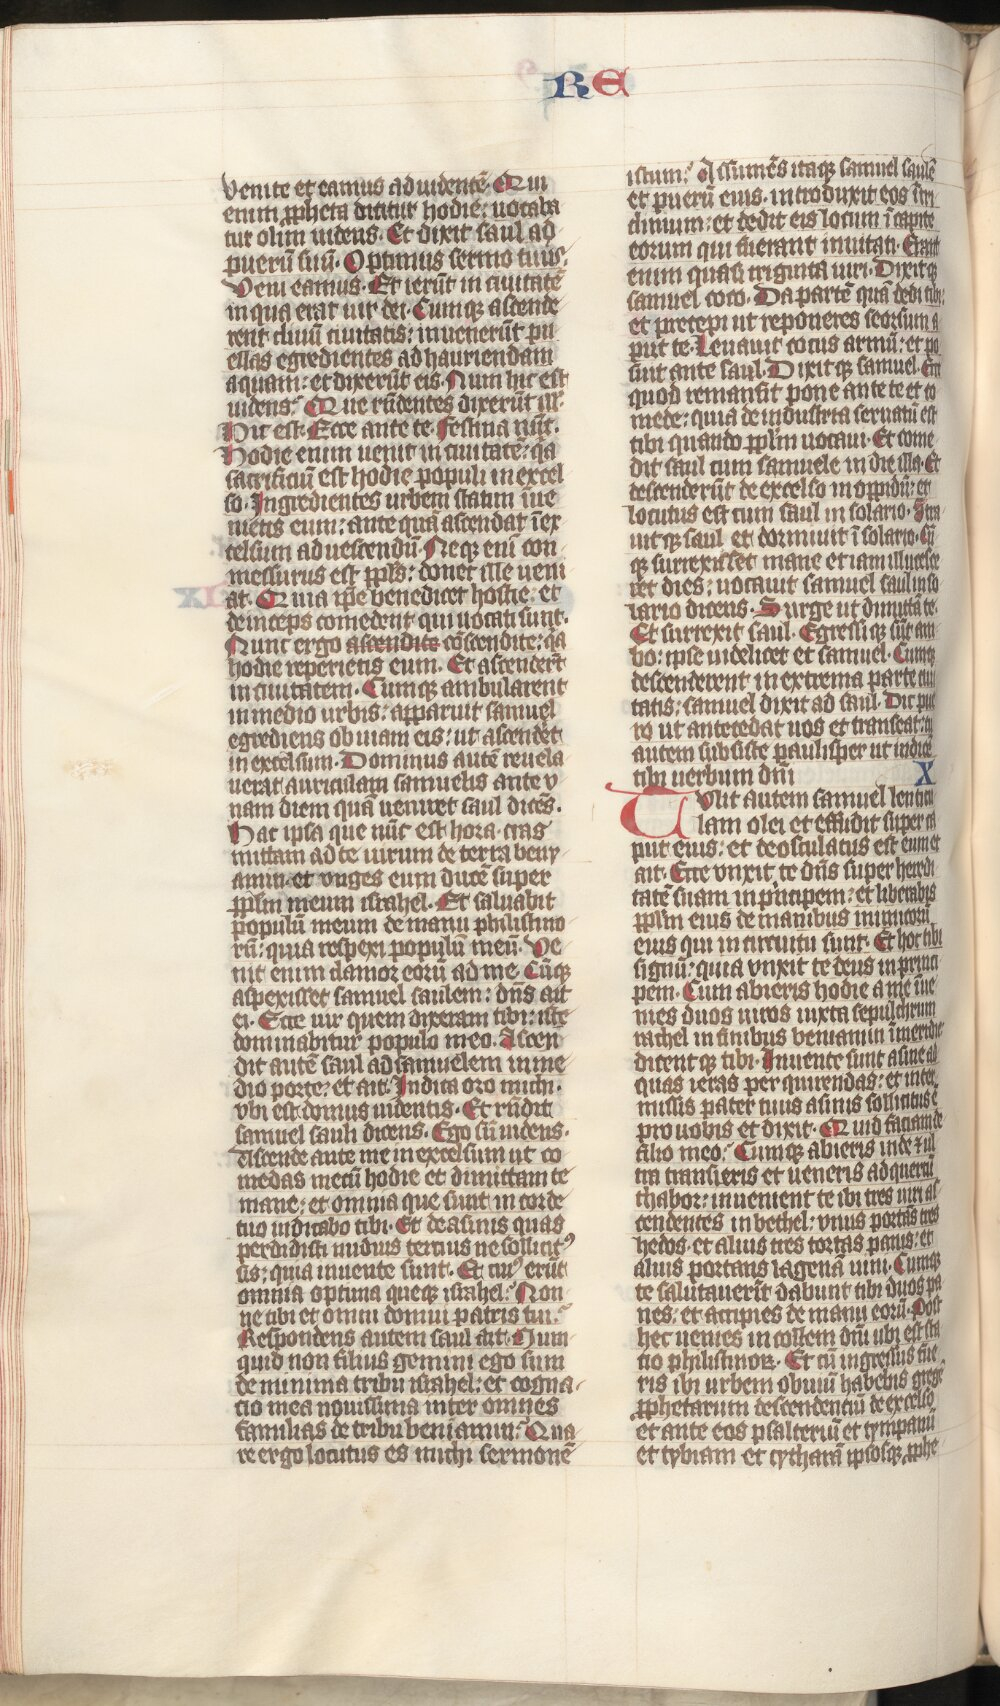 RE
venite et eamus ad videntē. Qui
enim ꝓpheta dicitur hodie: vocaba
tur olim videns. Et dixit saul ad
puerū suū. Optimus sermo tuus.
Veni eamus. Et ierūt in civitatē
in qua erat vir dei. Cumqꝫ ascende
rent clivū civitatis: invenerūt pu
ellas egredientes ad hauriendam
aquam: et dixerūt eis. Num hic est
videns? Que rn̄dentes dixerūt ill'.
Hic est. Ecce ante te. Festina nūc.
Hodie enim venit in civitatē: q̄a
sacrificiū est hodie populi in excel
so. Ingredientes urbem statim īve
nietis eum: ante quā ascendat ī ex
celsum ad vescendū. Neqꝫ enī com
messurus est ppl̄s: donec ille veni
at. Quia ip̄e benedicet hostie: et
deinceps comedent qui vocati sunt.
Nunc ergo ascendite cōscendite: q̄a
hodie reperietis eum. Et ascenderūt
in civitatem. Cumqꝫ ambularent
in medio urbis: apparuit samuel
egrediens obviam eis: ut ascenderēt
in excelsum. Dominus autē revela
verat auriculam samuelis ante v
nam diem quā veniret saul dicēs.
Hac ipsa que nūc est hora. cras
mittam ad te virum de terra beny
amin. et unges eum ducē super
ppl̄m meum israhel. Et salvabit
populū meum de manu philistino
rū: quia respexi populū meū. Ve
nit enim clamor eorū ad me. Cūqꝫ
aspexisset samuel saulem: dn̄s ait
ei. Ecce vir quem dixeram tibi: iste
dominabitur populo meo. Accen
dit autē saul ad samuelem in me
dio porte: et ait. Indica oro michi.
ubi est domus videntis. Et rn̄dit
samuel sauli dicens. Ego sū videns.
Discende ante me in excelsum ut co
medas mecū hodie et dimittam te
mane: et omnia que sunt in corde
tuo indicabo tibi. Et de asinis quas
perdidisti nudius tercius ne sollicitꝰ
sis: quia invente sunt. Et cuiꝰ erūt
omnia optima queqꝫ israhel? Non
ne tibi et omni domui patris tui?
Respondens autem saul ait. Num
quid non filius gemini ego sum
de minima tribu israhel: et cogna
cio mea novissima inter omnes
familias de tribu beniamin? Qua
re ergo locutus es michi sermonē
istum? Assumēs itaqꝫ samuel saulē
et puerū eius. introduxit eos ī tri
clinium: et dedit eis locum ī capite
eorum qui fuerant invitati. Erant
enim quasi triginta viri. Dixitqꝫ
samuel coco. Da partē quā dedi tibi:
et precepi ut reponeres seorsum a
put te. Levavit cocus armū: et po
suit ante saul. Dixitqꝫ samuel. Ecce
quod remansit pone ante te et co
mede: quia de industria servatū est
tibi quando ppl̄m vocavi. Et come
dit saul cum samuele in die illa. Et
descenderūt de excelso in oppidū: et
locutus est cum saul in solario. Stra
vitqꝫ saul et dormivit ī solario. Cū
qꝫ surrexisset mane et iam illucesce
ret dies: vocavit samuel saul in so
lario dicens. Surge ut dimittā te.
Et surrexit saul. Egressiqꝫ sūt am
bo: ipse videlicet et samuel. Cumqꝫ
descenderent in extrema parte civi
tatis: samuel dixit ad saul. Dic pue
ro ut antecedat nos et transeat: tu
autem subsiste paulisper ut indicē
tibi verbum dn̄i X
Tulit autem samuel lenticu
lam olei et effudit super ca
put eius: et deosculatus est eum et
ait. Ecce unxit te dn̄s super heredi
tatē suam in principem: et liberabis
ppl̄m eius de manibus inimicorū
eius qui in circuitu sunt. Et hoc tibi
signū: quia unxit te deus in princi
pem. Cum abieris hodie a me īve
nies duos viros iuxta sepulchrum
rachel in finibus beniamin ī meridie
dicentqꝫ tibi. Invente sunt asine ad
quas ieras perquirendas: et inter
missis pater tuus asinis sollicitus ē
pro vobis et dixit. Quid faciam de
filio meo? Cumqꝫ abieris inde et ul
tra transieris et veneris ad quercū
thabor: invenient te ibi tres viri as
cendentes in bethel: unus portās tres
hedos. et alius tres tortas panis: et
alius portans lagenā vini. Cumqꝫ
te salutaverīt dabunt tibi duos pa
nes: et accipies de manu eorū. Post
hec venies in collem dn̄i ubi est sta
cio philistinoꝝ. Et cū ingressus fue
ris ibi urbem obviū habebis gregē
ꝓphetarum descendentiū de excelso
et ante eos psalteriū et tympanū
et tybiam et cytharā ipsosqꝫ ꝓphe